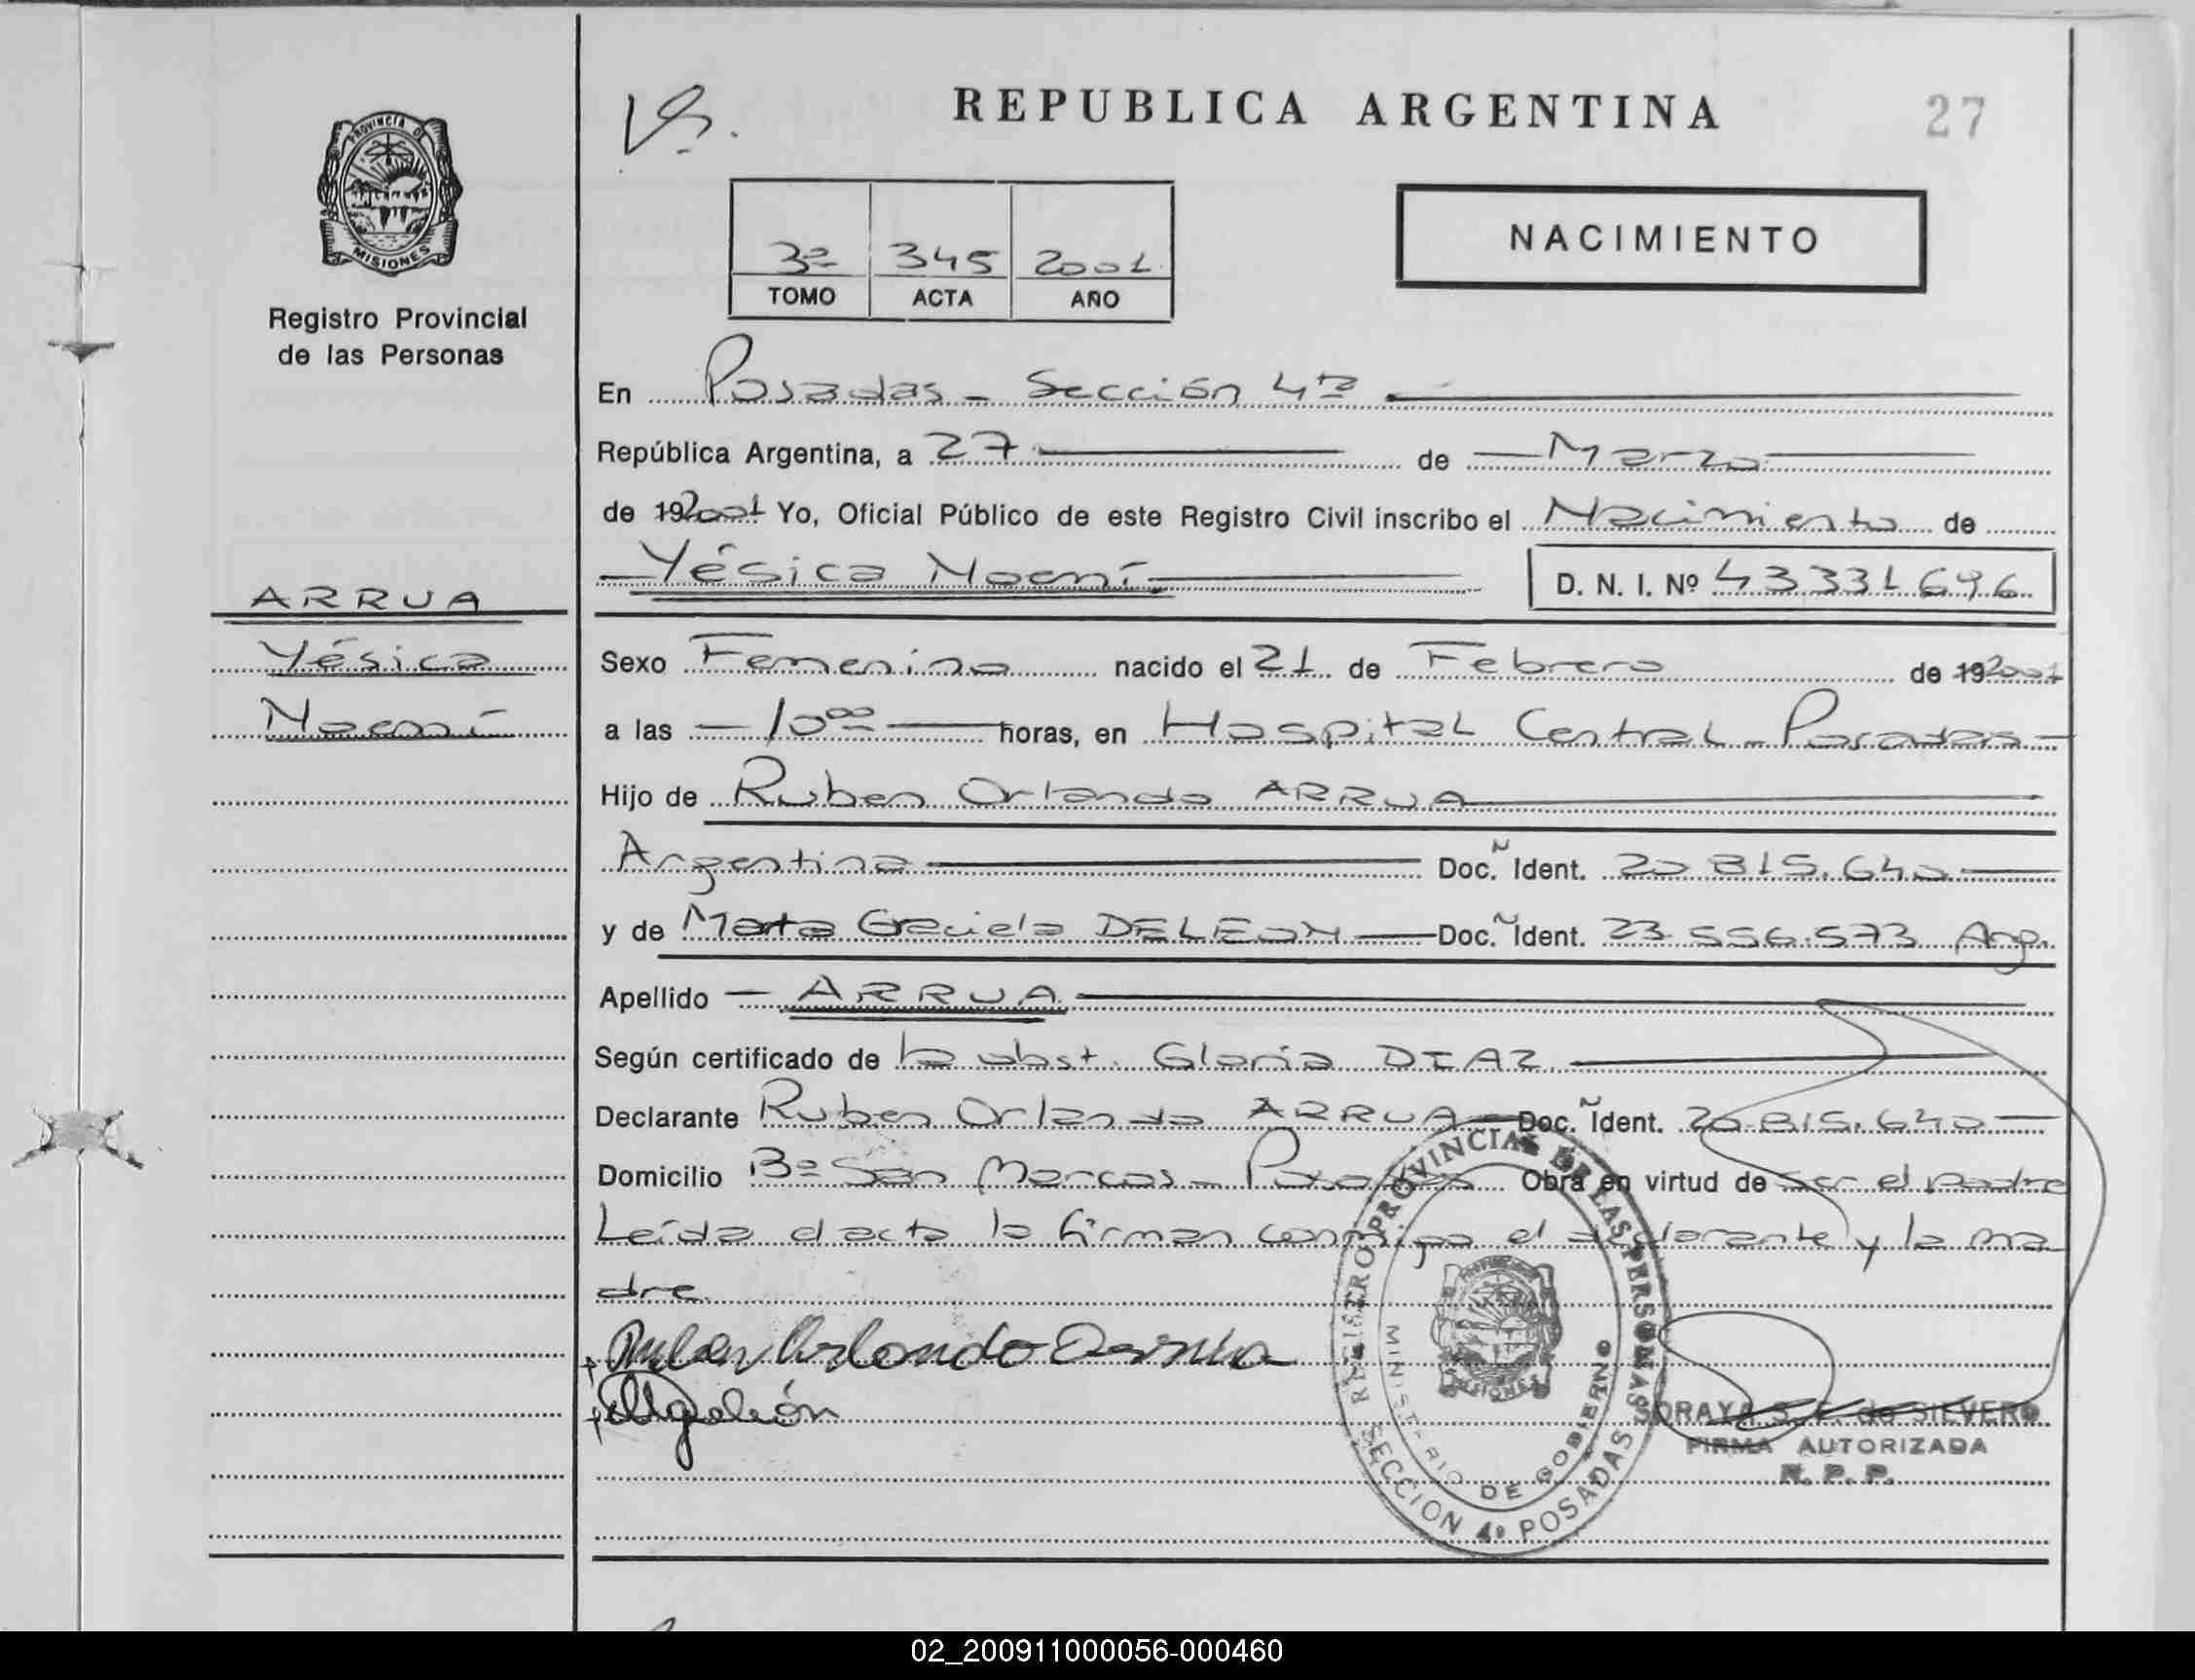 REPUBLICA ARGENTINA
27
PROVINCIA DE
MISIONES
Registro Provincial
de las Personas
3º 345 2001
TOMO ACTA AÑO
NACIMIENTO
En Posadas - Sección 4ta
República Argentina, a 27 de Marzo
de 192001 Yo, Oficial Público de este Registro Civil inscribo el Nacimiento de
Yésica Noemí D. N. I. Nº 43331696
ARRUA
Yésica
Noemí
Sexo Femenino nacido el 21 de Febrero de 192001
a las 10ºº horas, en Hospital Central - Posadas -
Hijo de Ruben Orlando ARRUA
Argentina Doc. Ident. 20 815.640
y de Marta Graciela DELEON Doc. Ident. 23.556.573 Arg.
Apellido ARRUA
Según certificado de la obst. Gloria DIAZ
Declarante Ruben Orlando ARRUA Doc. Ident. 20.815.640
Domicilio Bº San Marcos - Posadas Obra en virtud de ser el padre
Leída el acta la firman conmigo el declarante y la ma
dre.
Ruben Orlando Arrua
REGISTRO PROVINCIAL DE LAS PERSONAS
MINISTERIO DE GOBIERNO
MISIONES
SECCION 4º POSADAS
SORAYA S. de SILVERO
FIRMA AUTORIZADA
R. P. P.
02_200911000056-000460